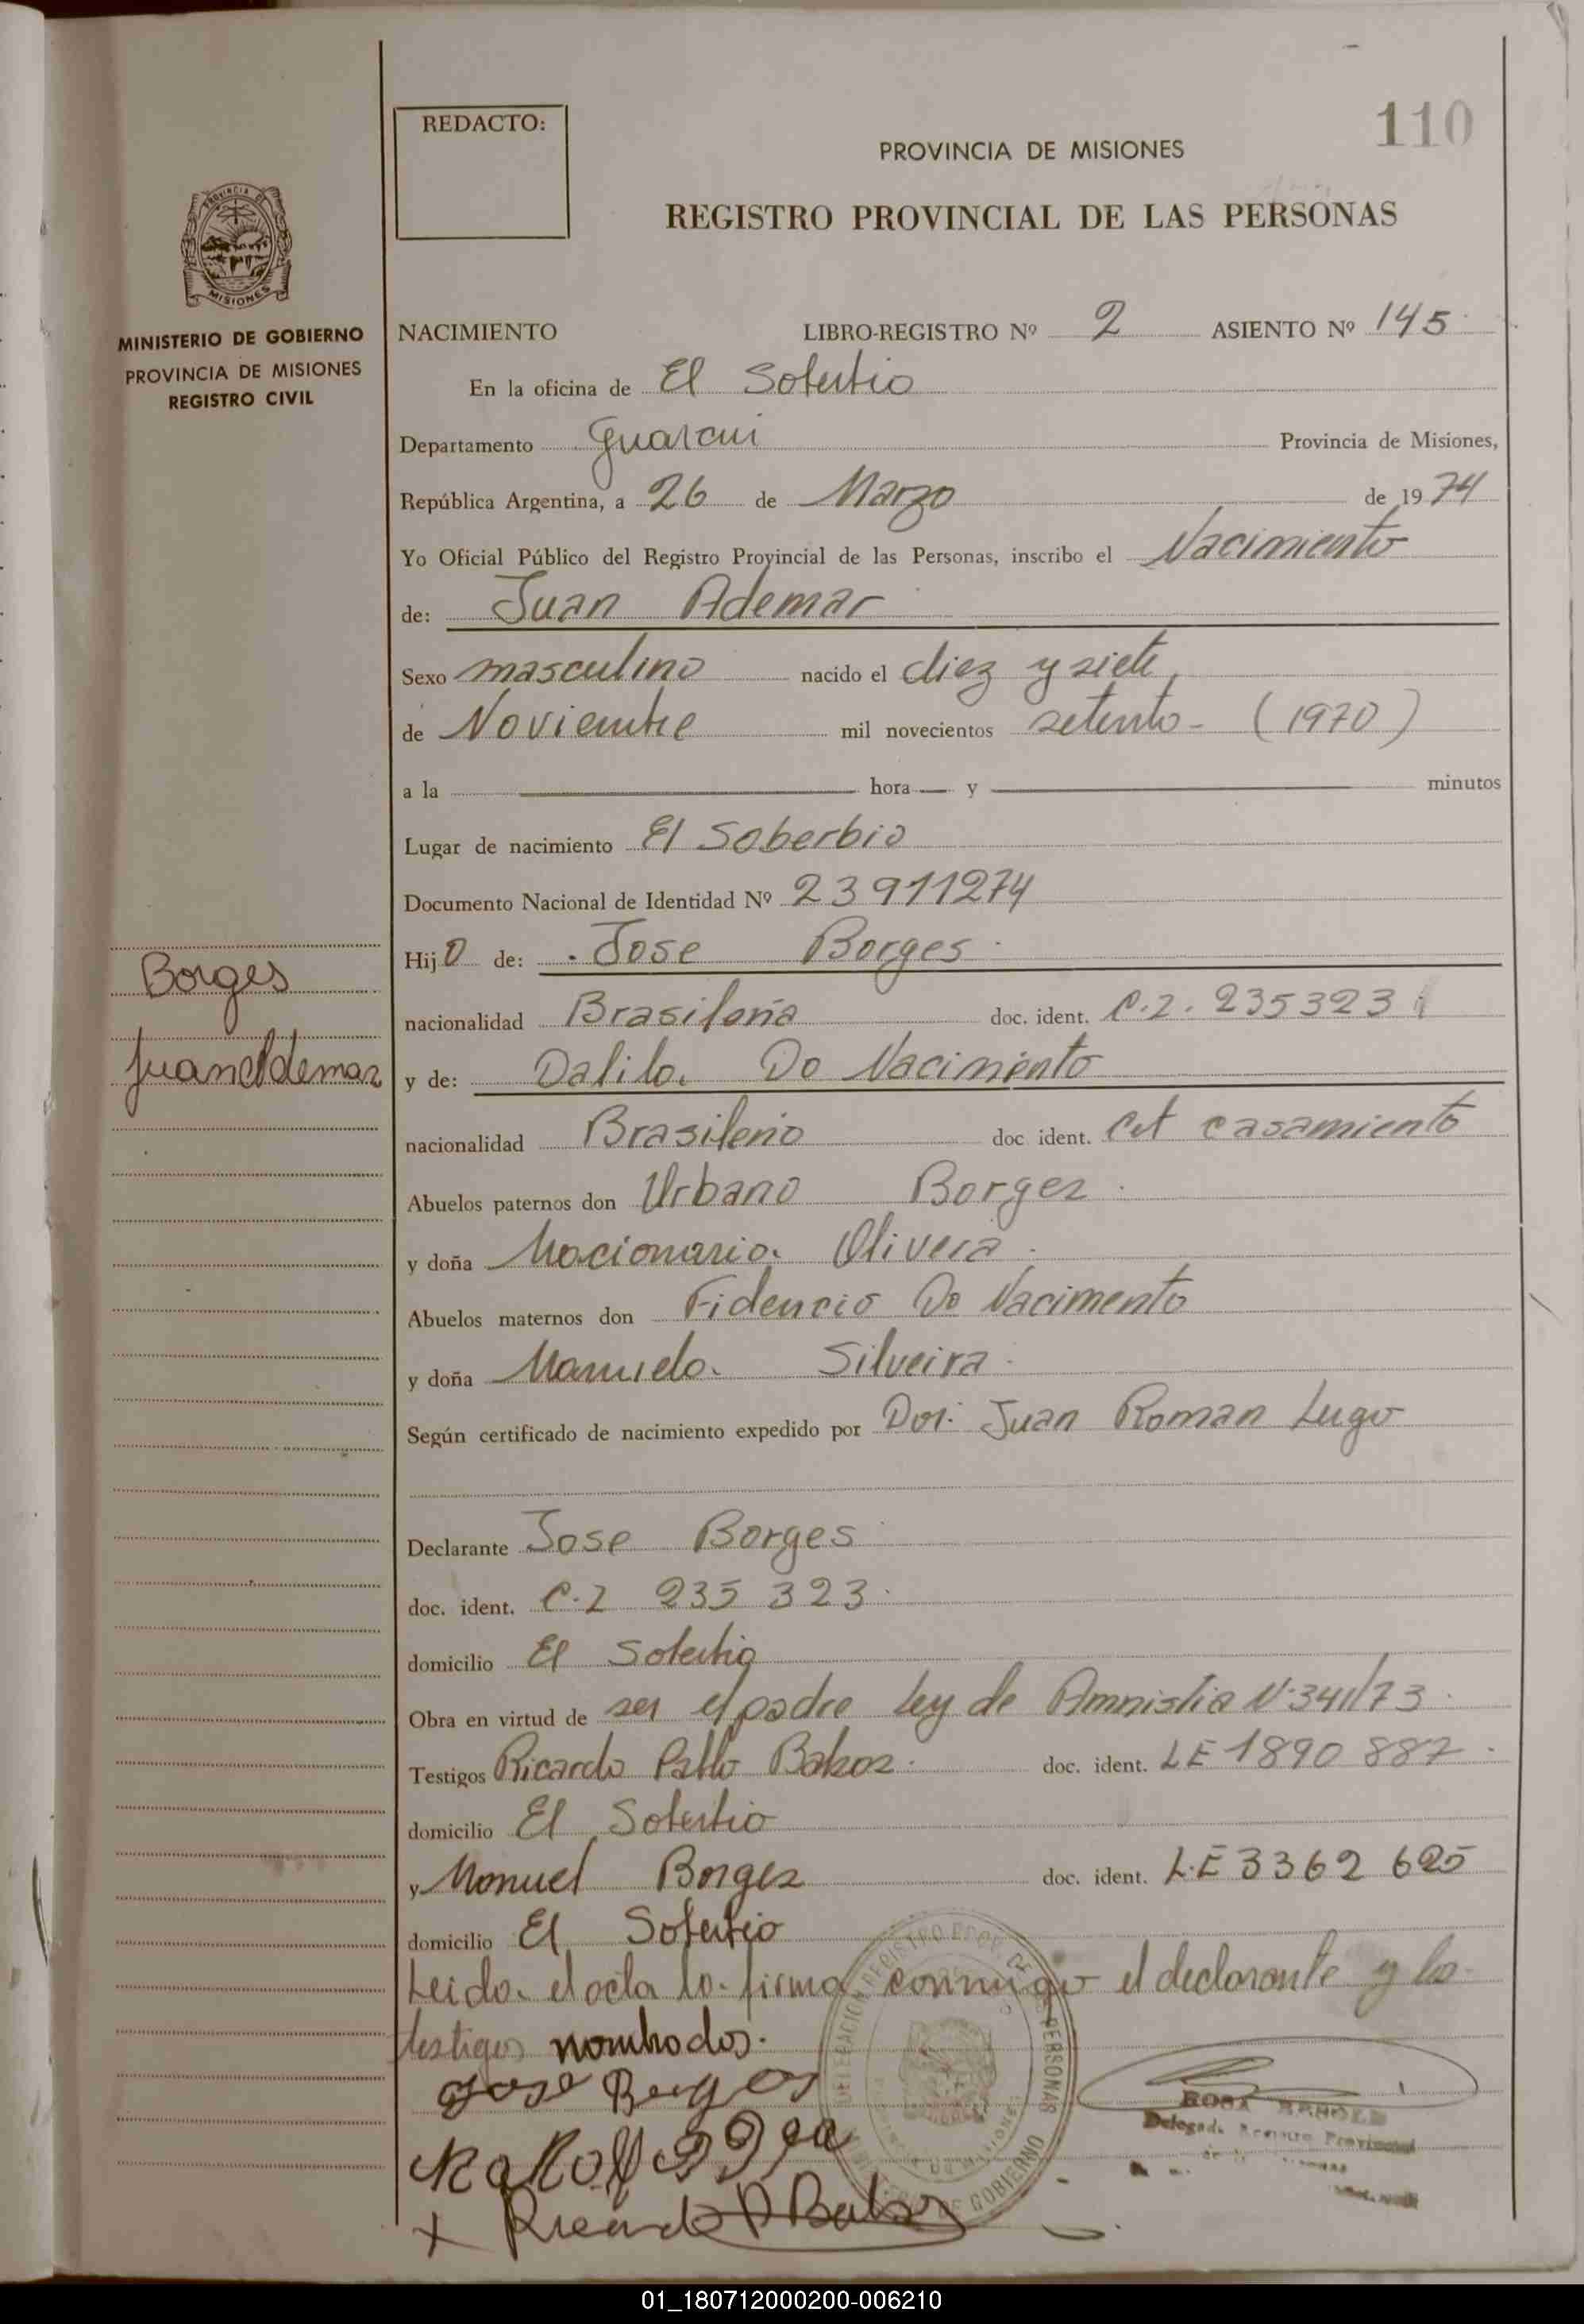 110
REDACTO:
PROVINCIA DE MISIONES
REGISTRO PROVINCIAL DE LAS PERSONAS
MISIONES
MINISTERIO DE GOBIERNO
PROVINCIA DE MISIONES
REGISTRO CIVIL
NACIMIENTO LIBRO-REGISTRO Nº 2 ASIENTO Nº 145
En la oficina de El Soberbio
Departamento Guarani Provincia de Misiones,
República Argentina, a 26 de Marzo de 1974
Yo Oficial Público del Registro Provincial de las Personas, inscribo el Nacimiento
de: Juan Ademar
Sexo masculino nacido el diez y siete
de Noviembre mil novecientos setenta - (1970)
a la hora y minutos
Lugar de nacimiento El Soberbio
Documento Nacional de Identidad Nº 23911274
Hijo de: Jose Borges
Borges
nacionalidad Brasileña doc. ident. C.I. 235323
Juan Ademar
y de: Dalila Do Nacimiento
nacionalidad Brasileña doc ident. Act casamiento
Abuelos paternos don Urbano Borges
y doña Olivera
Abuelos maternos don Fidencio Do Nacimento
y doña Manuela Silveira
Según certificado de nacimiento expedido por Dor: Juan Roman Lugo
Declarante Jose Borges
doc. ident. C.I 235 323
domicilio El Soberbio
Obra en virtud de ser el padre Ley de Amnistia N·341/73
Testigos Ricardo Pablo doc. ident. LE 1890 887
domicilio El Soberbio
y Manuel Borges doc. ident. L.E 3362 625
domicilio El Soberbio
Leida el acta la firma conmigo el declarante y los
testigos nombrados.
Jose Borges
ROSA
Delegada Provincial
Ricardo P
01_180712000200-006210